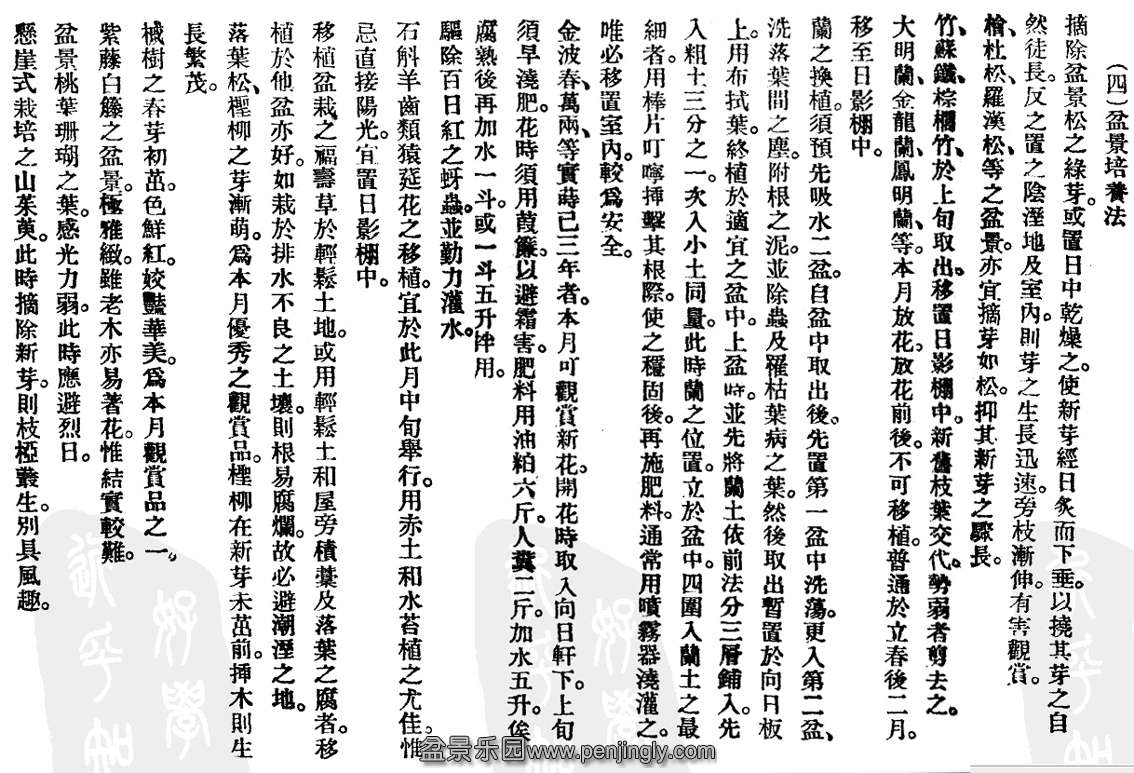 （四）盆景培養法
摘除盆景松之綠芽。或置日中乾燥之。使新芽經日炙而下垂。以撓其芽之自
然徒長。反之置之陰溼地及室內。則芽之生長迅速。旁枝漸伸。有害觀賞。
檜、杜松、羅漢松、等之盆景。亦宜摘芽如松。抑其新芽之驟長。
竹、蘇鐵、棕櫚竹、於上旬取出。移置日影棚中。新舊枝葉交代。勢弱者剪去之。
大明蘭、金龍蘭、鳳明蘭、等。本月放花。放花前後。不可移植。普通於立春後二月。
移至日影棚中。
蘭之換植。須預先吸水二盆。自盆中取出後。先置第一盆中洗蕩。更入第二盆、
洗落葉間之塵。附根之泥。並除蟲及罹枯葉病之葉。然後取出暫置於向日板
上。用布拭葉。終植於適宜之盆中。上盆時。並先將蘭土依前法分三層鋪入。先
入粗土三分之一。次入小土同量。此時蘭之位置。立於盆中。四圍入蘭土之最
細者。用棒片叮嚀揷擊其根際。使之穩固後。再施肥料。通常用噴霧器澆灌之。
唯必移置室內。較爲安全。
金波春、萬兩、等實蒔已三年者。本月可觀賞新花。開花時取入向日軒下。上旬
須早澆肥。花時須用葭簾。以避霜害。肥料用油粕六斤。人糞二斤。加水五升。俟
腐熟後再加水一斗。或一斗五升拌用。
驅除百日紅之蚜蟲。並勤力灌水。
石斛羊齒類猿莚花之移植。宜於此月中旬舉行。用赤土和水苔植之尤佳。惟
忌直接陽光。宜置日影棚中。
移植盆栽之福壽草於輕鬆土地。或用輕鬆土和屋旁積藁及落葉之腐者。移
植於他盆亦好。如栽於排水不良之土壤。則根易腐爛。故必避潮溼之地。
落葉松、檉柳之芽漸萌。爲本月優秀之觀賞品。檉柳在新芽未茁前。揷木則生
長繁茂。
槭樹之春芽初茁。色鮮紅。姣豔華美。爲本月觀賞品之一。
紫藤白籐之盆景。極雅緻。雖老木亦易著花。惟結實較難。
盆景桃葉珊瑚之葉。感光力弱。此時應避烈日。
懸崖式栽培之山茱萸。此時摘除新芽。則枝椏叢生。別具風趣。
盆景乐园www.penjingly.com